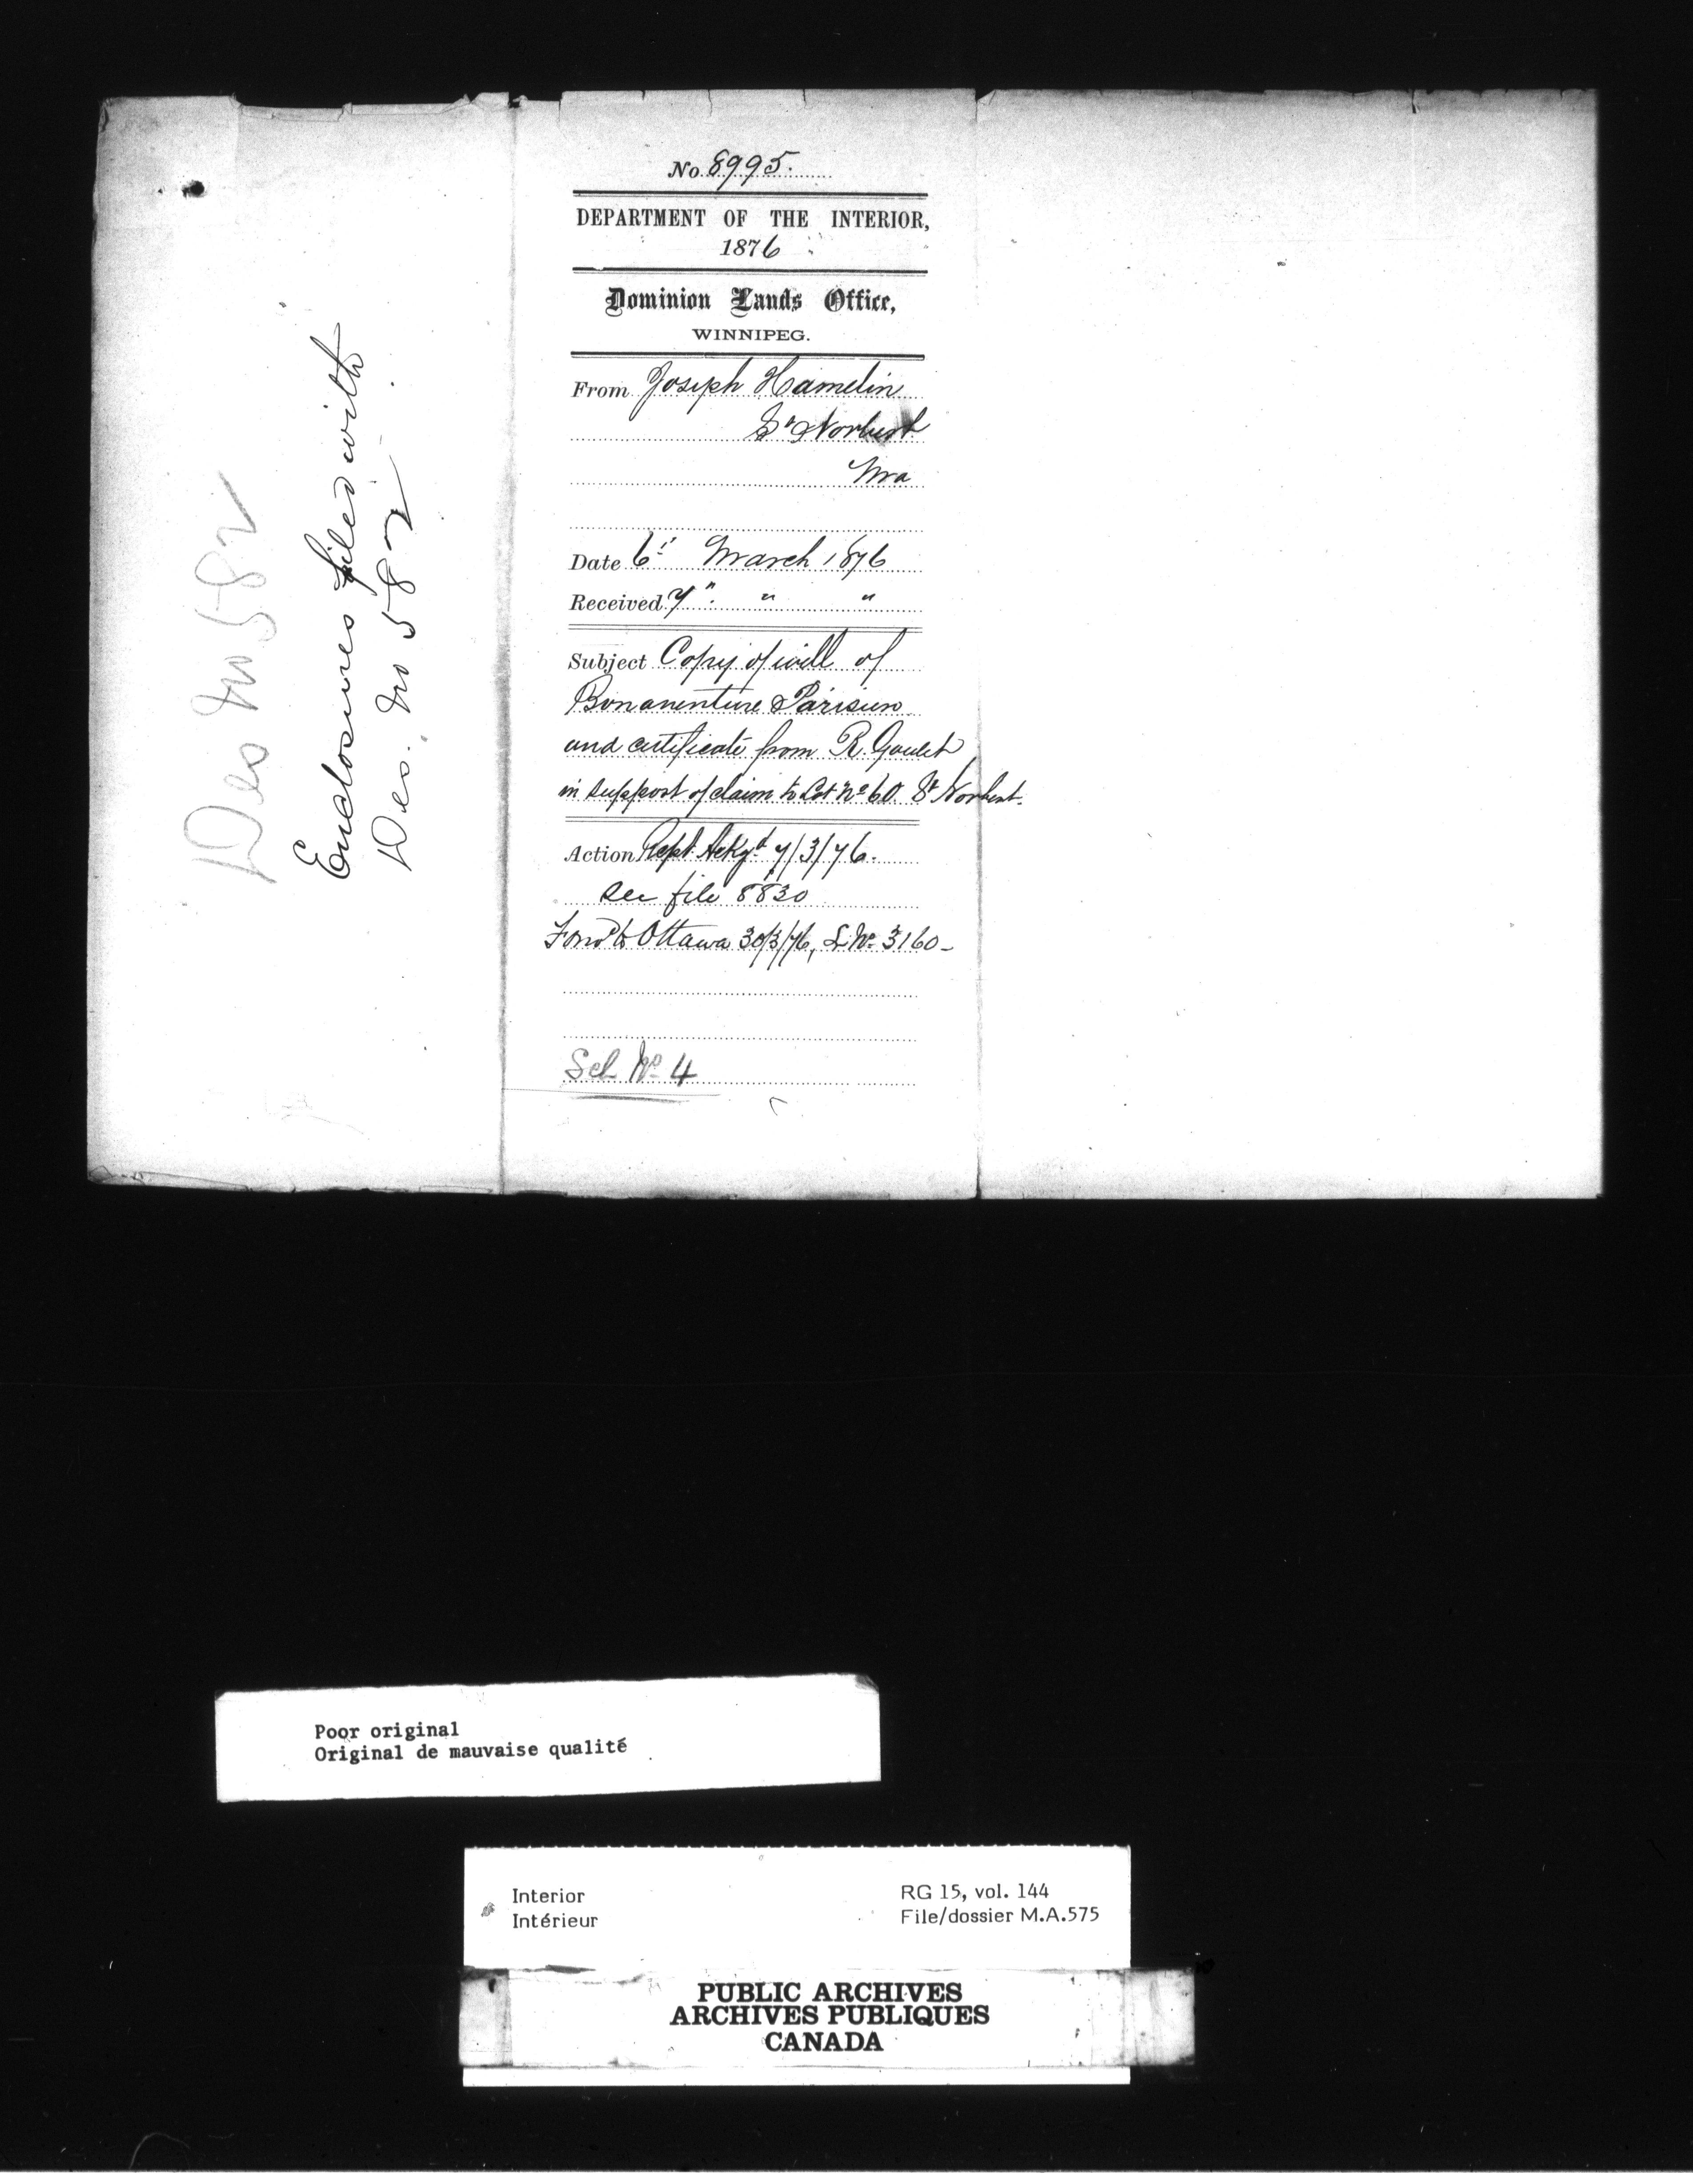 Des No 582
Enclosures filed with
Des. No 582
No. 8995.
DEPARTMENT OF THE INTERIOR,
1876
Dominion Lands Office,
WINNIPEG.
From Joseph Hamelin
St Norbert
Ma
Date 6th March 1876
Received 7" " "
Subject Copy of will of
Bonaventure Parisien
and certificate from R. Goulet
in support of claim to Lot No 60 St Norbert.
Action Rept. Ackgd 7/3/76.
see file 8830
Forwd to Ottawa 30/3/76, L. No. 3160-
Sch No. 4
Poor original
Original de mauvaise qualité
Interior
Intérieur
RG 15, vol. 144
File/dossier M.A.575
PUBLIC ARCHIVES
ARCHIVES PUBLIQUES
CANADA